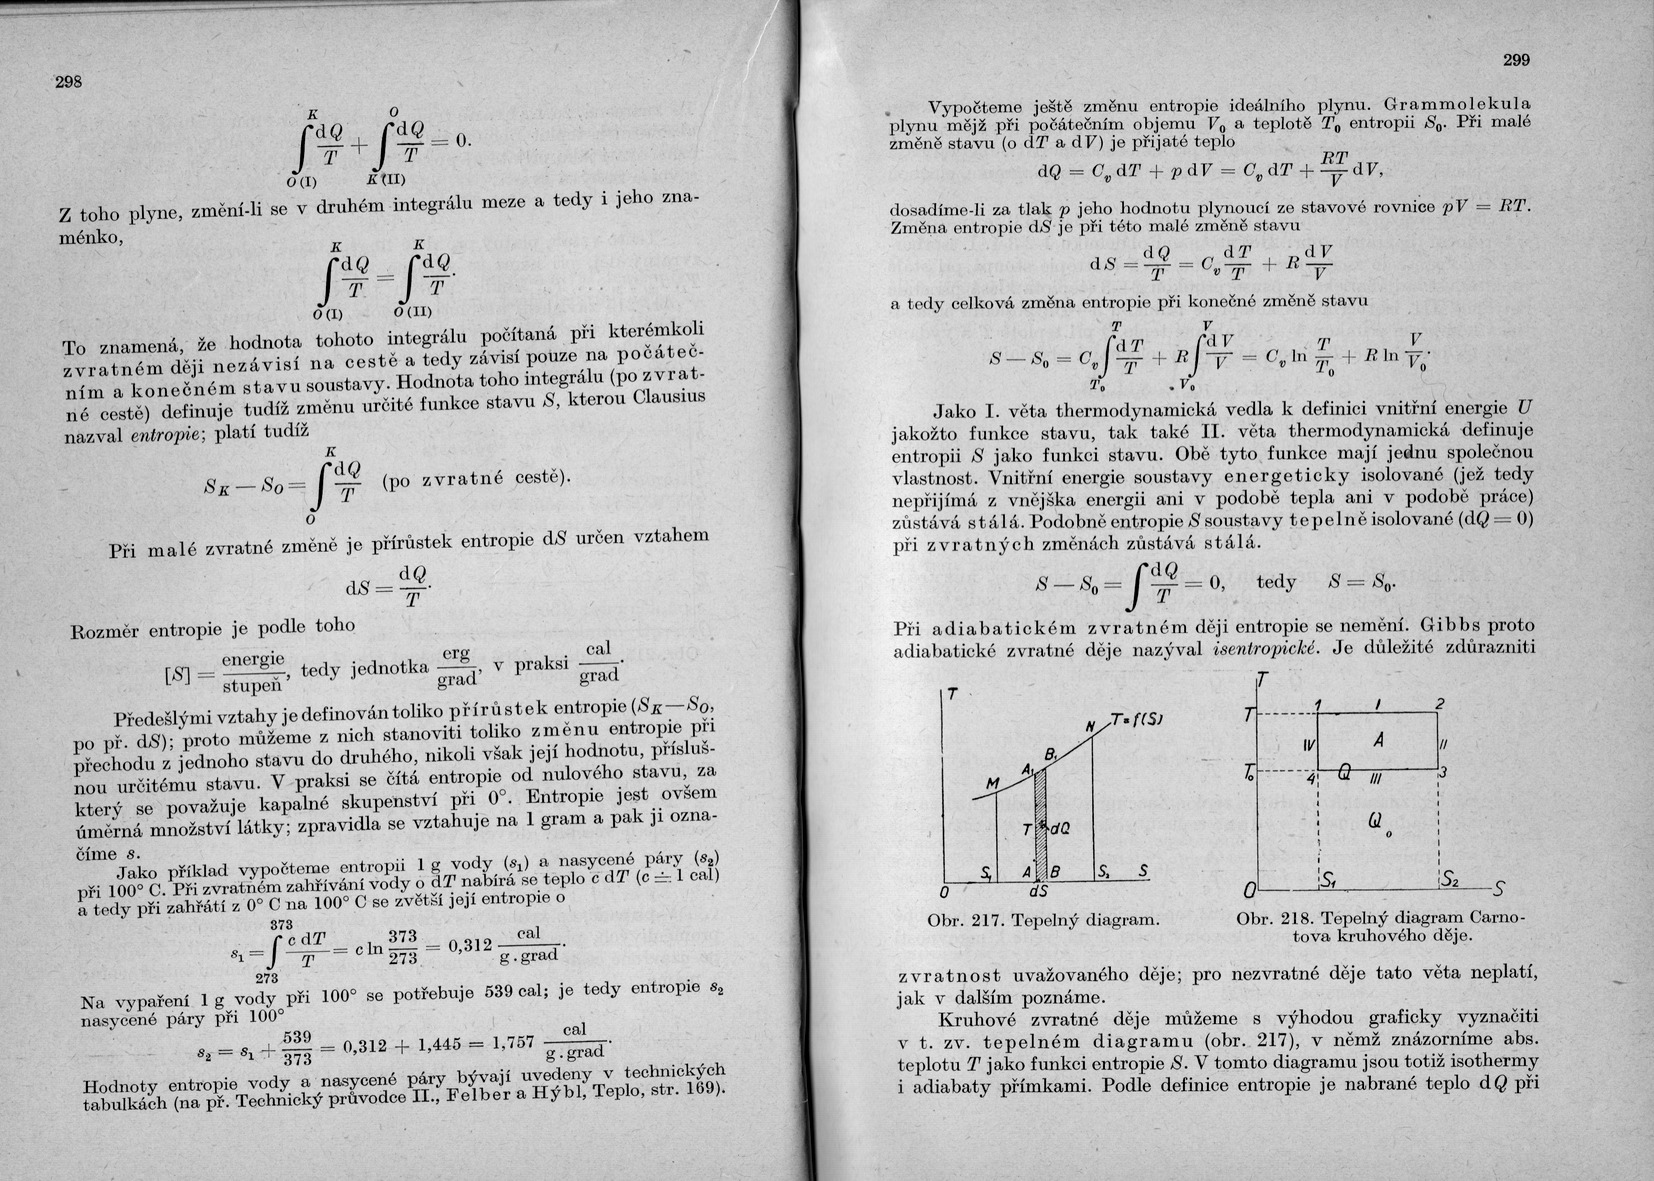 298
K O
∫ dQ/T + ∫ dQ/T = 0.
O (I) K (II)
Z toho plyne, změní-li se v druhém integrálu meze a tedy i jeho zna-
ménko,
K K
∫ dQ/T = ∫ dQ/T.
O (I) O (II)
To znamená, že hodnota tohoto integrálu počítaná při kterémkoli
zvratném ději nezávisí na cestě a tedy závisí pouze na počáteč-
ním a konečném stavu soustavy. Hodnota toho integrálu (po zvrat-
né cestě) definuje tudíž změnu určité funkce stavu S, kterou Clausius
nazval entropie; platí tudíž
K
S_K — S_O = ∫ dQ/T (po zvratné cestě).
O
Při malé zvratné změně je přírůstek entropie dS určen vztahem
dS = dQ/T.
Rozměr entropie je podle toho
[S] = energie/stupeň, tedy jednotka erg/grad, v praksi cal/grad.
Předešlými vztahy je definován toliko přírůstek entropie (S_K — S_O,
po př. dS); proto můžeme z nich stanoviti toliko změnu entropie při
přechodu z jednoho stavu do druhého, nikoli však její hodnotu, přísluš-
nou určitému stavu. V praksi se čítá entropie od nulového stavu, za
který se považuje kapalné skupenství při 0°. Entropie jest ovšem
úměrná množství látky; zpravidla se vztahuje na 1 gram a pak ji ozna-
číme s.
Jako příklad vypočteme entropii 1 g vody (s₁) a nasycené páry (s₂)
při 100° C. Při zvratném zahřívání vody o dT nabírá se teplo c dT (c ≐ 1 cal)
a tedy při zahřátí z 0° C na 100° C se zvětší její entropie o
373
s₁ = ∫ c dT/T = c ln 373/273 = 0,312 cal/g.grad.
273
Na vypaření 1 g vody při 100° se potřebuje 539 cal; je tedy entropie s₂
nasycené páry při 100°
s₂ = s₁ + 539/373 = 0,312 + 1,445 = 1,757 cal/g.grad.
Hodnoty entropie vody a nasycené páry bývají uvedeny v technických
tabulkách (na př. Technický průvodce II., Felber a Hýbl, Teplo, str. 169).
299
Vypočteme ještě změnu entropie ideálního plynu. Grammolekula
plynu mějž při počátečním objemu V₀ a teplotě T₀ entropii S₀. Při malé
změně stavu (o dT a dV) je přijaté teplo
dQ = C_v dT + p dV = C_v dT + RT/V dV,
dosadíme-li za tlak p jeho hodnotu plynoucí ze stavové rovnice pV = RT.
Změna entropie dS je při této malé změně stavu
dS = dQ/T = C_v dT/T + R dV/V
a tedy celková změna entropie při konečné změně stavu
T V
S — S₀ = C_v ∫ dT/T + R ∫ dV/V = C_v ln T/T₀ + R ln V/V₀.
T₀ V₀
Jako I. věta thermodynamická vedla k definici vnitřní energie U
jakožto funkce stavu, tak také II. věta thermodynamická definuje
entropii S jako funkci stavu. Obě tyto funkce mají jednu společnou
vlastnost. Vnitřní energie soustavy energeticky isolované (jež tedy
nepřijímá z vnějška energii ani v podobě tepla ani v podobě práce)
zůstává stálá. Podobně entropie S soustavy tepelně isolované (dQ = 0)
při zvratných změnách zůstává stálá.
S — S₀ = ∫ dQ/T = 0, tedy S = S₀.
Při adiabatickém zvratném ději entropie se nemění. Gibbs proto
adiabatické zvratné děje nazýval isentropické. Je důležité zdůrazniti
T
N T=f(S)
A₁ B₁
M
T dQ
S₁ A B S₂ S
0 dS
Obr. 217. Tepelný diagram.
T
T 1 I 2
IV A II
T₀ 4 Q III 3
Q₀
O S₁ S₂ S
Obr. 218. Tepelný diagram Carno-
tova kruhového děje.
zvratnost uvažovaného děje; pro nezvratné děje tato věta neplatí,
jak v dalším poznáme.
Kruhové zvratné děje můžeme s výhodou graficky vyznačiti
v t. zv. tepelném diagramu (obr. 217), v němž znázorníme abs.
teplotu T jako funkci entropie S. V tomto diagramu jsou totiž isothermy
i adiabaty přímkami. Podle definice entropie je nabrané teplo dQ při